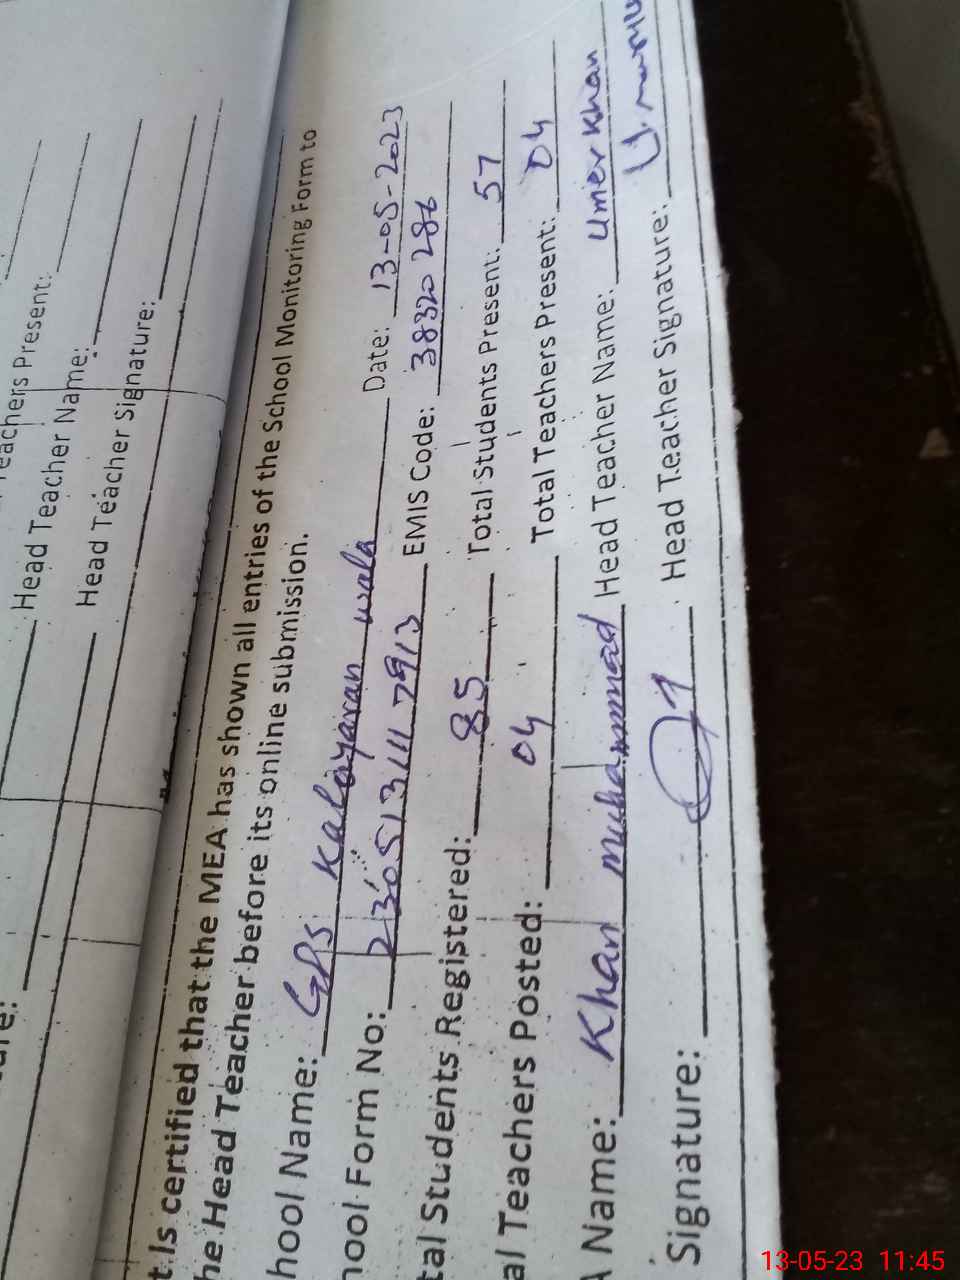 eachers Present:
Head Teacher Name:
Head Teacher Signature:
t is certified that the MEA has shown all entries of the School Monitoring Form to
he Head Teacher before its online submission.
hool Name: GPS Kalayaran wala Date: 13-05-2023
hool Form No: 2305131117913 EMIS Code: 38320286
tal Students Registered: 85 Total Students Present: 57
al Teachers Posted: 04 Total Teachers Present: 04
A Name: Khan muhammad Head Teacher Name: Umer Khan
Signature: Head Teacher Signature:
13-05-23 11:45